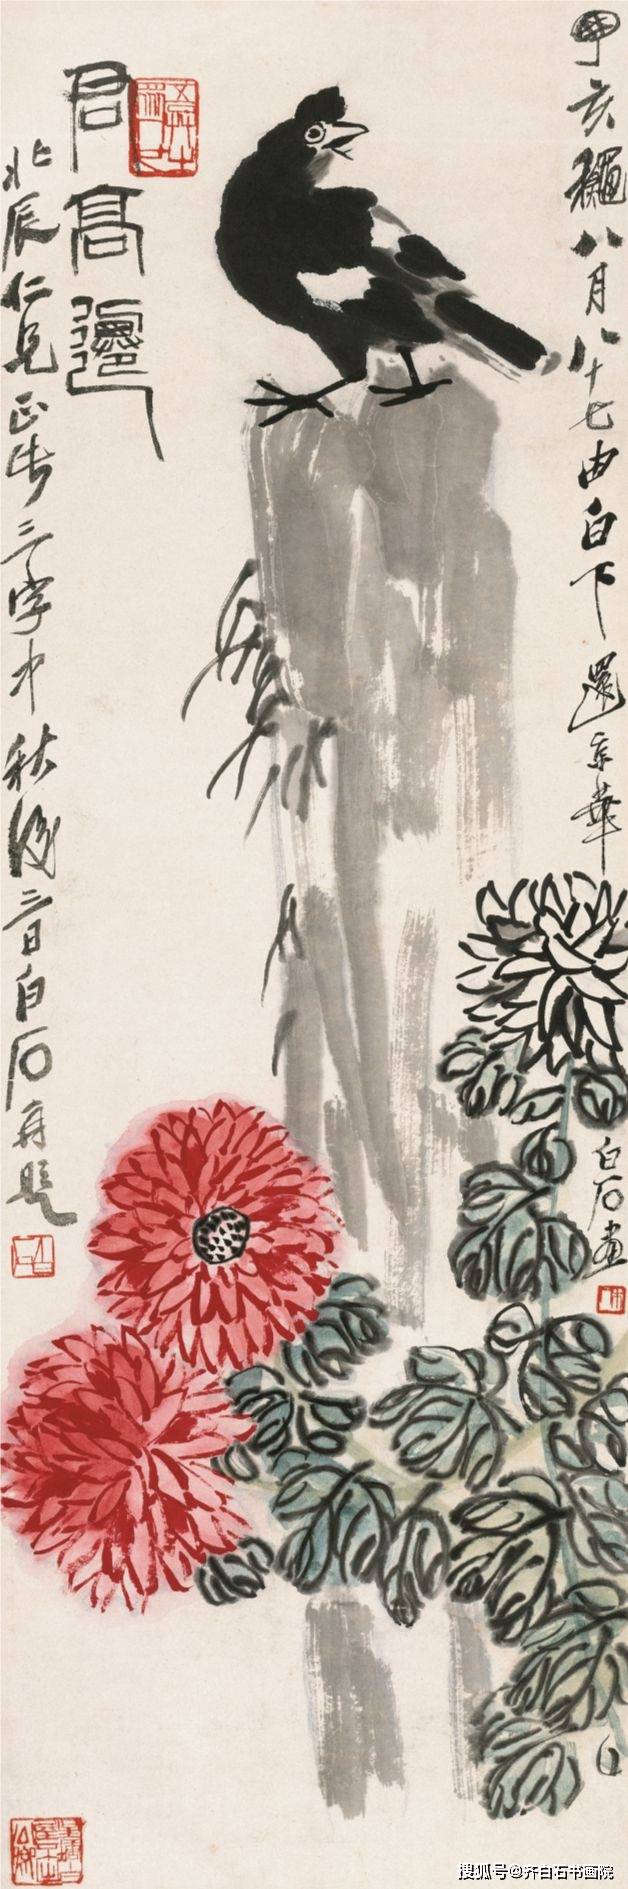 亥穐八月八十七由白下還京華
白石畫
君高遷
北辰仁兄正 三字中秋後三日白石再題
搜狐号@齐白石书画院